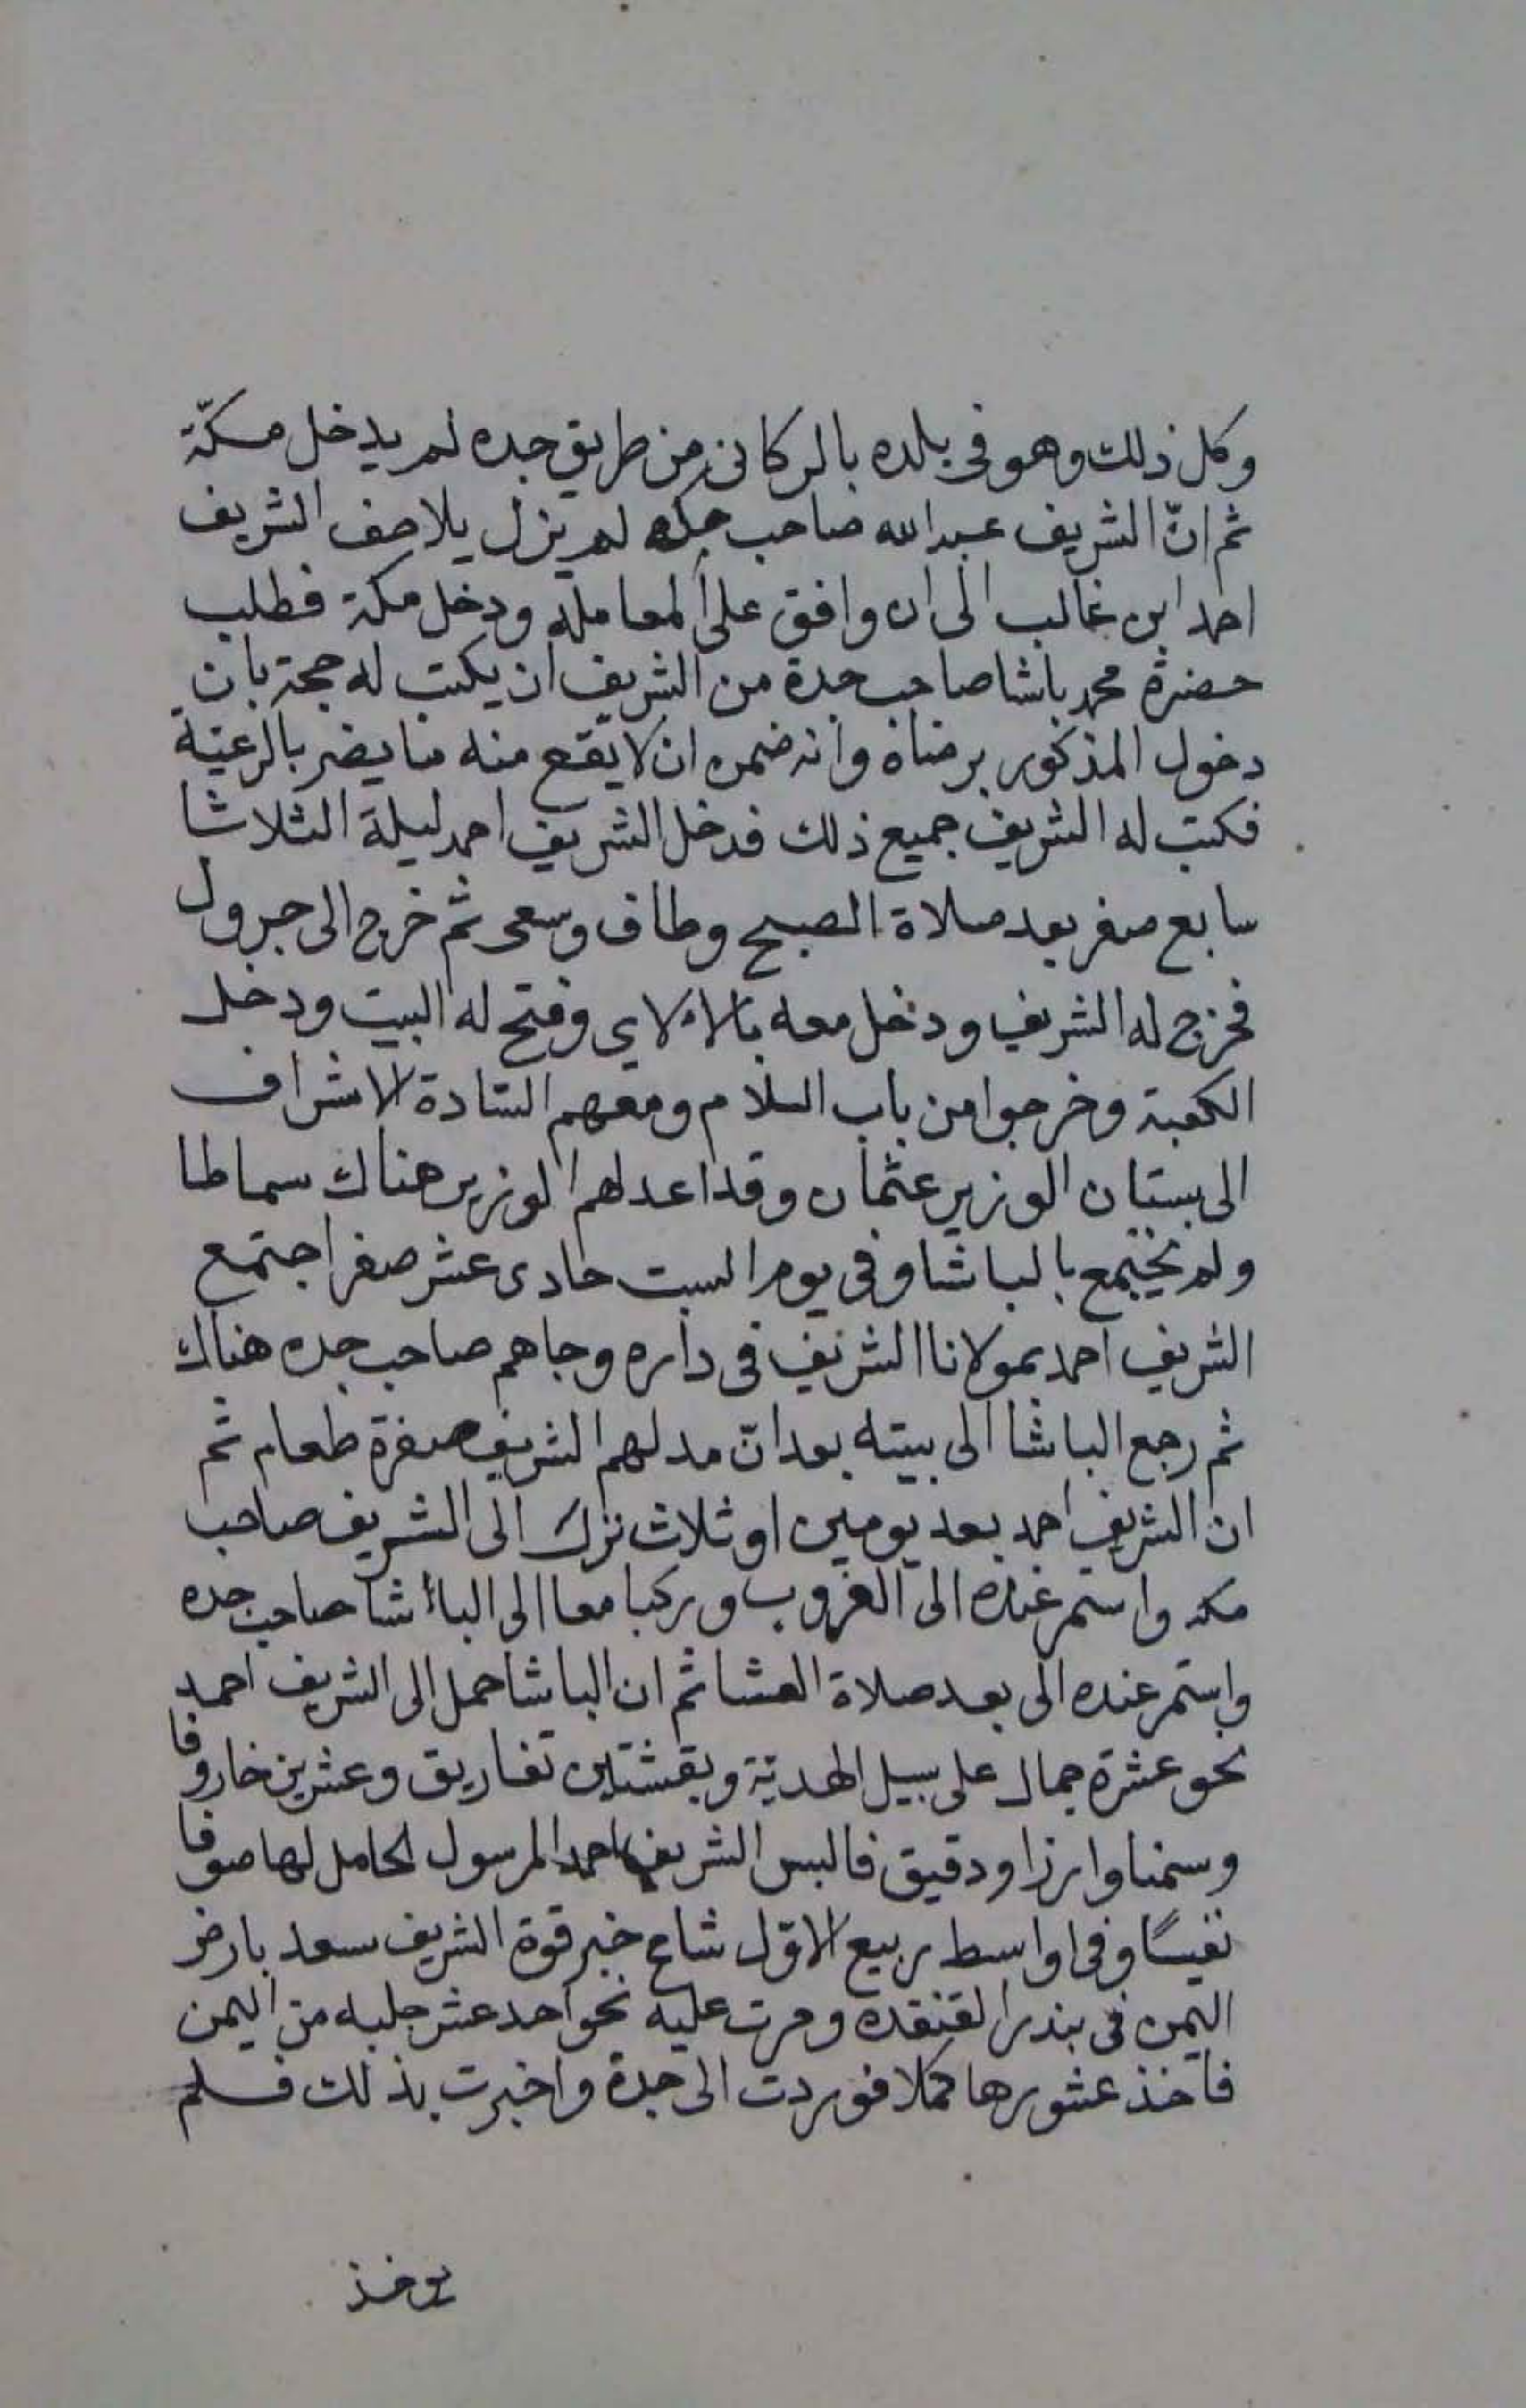 وكل ذلك وهو في بلده بالركاني من طريق جده لم يدخل مكّة
ثم انّ الشريف عبدالله صاحب مكه لم يزل يلاصف الشريف
احمد ابن غالب الى ان وافق على المعامله ودخل مكة فطلب
حضرة محمد باشا صاحب جدة من الشريف ان يكتب له حجة بان
دخول المذكور برضاه وانه ضمن ان لا يقع منه ما يضر بالرعية
فكتب له الشريف جميع ذلك فدخل الشريف احمد ليلة الثلاثا
سابع صفر بعد صلاة الصبح وطاف وسعى ثم خرج الى جرول
فخرج له الشريف ودخل معه بالالاي وفتح له البيت ودخل
الكعبة وخرجوا من باب السلام ومعهم السادة الاشراف
الى بستان الوزير عثمان وقد اعد لهم الوزير هناك سماطا
ولم يجتمع بالباشا وفي يوم السبت حادى عشر صفر اجتمع
الشريف احمد بمولانا الشريف في داره وجاهم صاحب جده هناك
ثم رجع الباشا الى بيته بعد انّ مد لهم الشريف صفرة طعام ثم
ان الشريف احمد بعد يومين او ثلاث نزل الى الشريف صاحب
مكه واستمر عنده الى الغروب وركبا معا الى الباشا صاحب جده
واستمر عنده الى بعد صلاة العشا ثم ان الباشا حمل الى الشريف احمد
نحو عشرة جمال على سبيل الهديّة وبقشتين تفاريق وعشرين خاروفا
وسمنا وارزا ودقيق فالبس الشريف احمد المرسول الحامل لها صوفا
نفيسًا وفي اواسط ربيع الاوّل شاع خبر قوة الشريف سعد بارض
اليمن في بندر القنفده ومرت عليه نحو احد عشر جلبه من اليمن
فاخذ عشورها كملا فوردت الى جدة واخبرت بذلك فلم